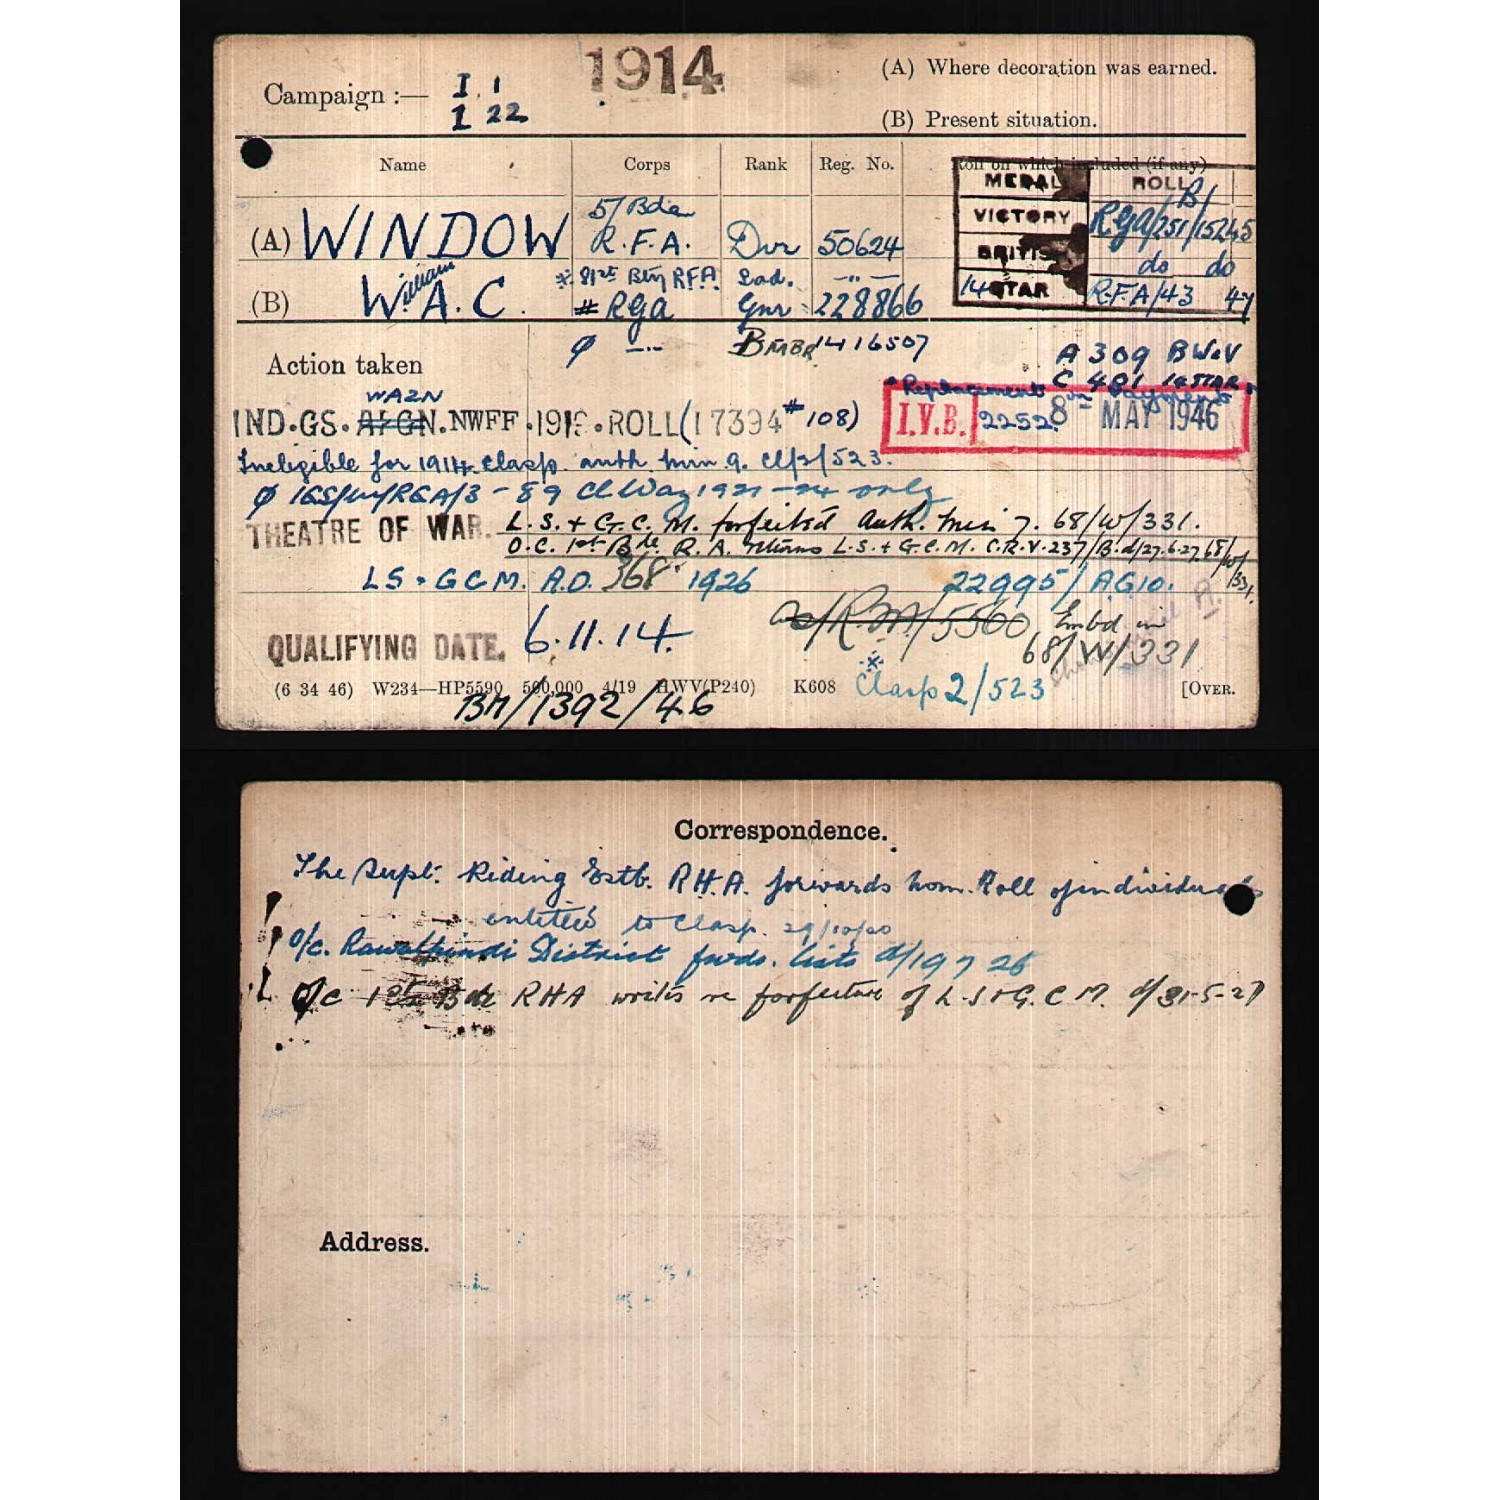 1914
Campaign :— I. 1
I 22
(A) Where decoration was earned.
(B) Present situation.
Name Corps Rank Reg. No. Roll on which included (if any)
MEDAL ROLL
(A) WINDOW 5/Bde R.F.A. Dvr 50624
VICTORY B/ RGA/251/15245
BRITISH do do
(B) William W. A. C. * 81st Bty RFA Sad. —"—
# RGA Gnr 228866
14 STAR R.F.A/43 47
Action taken
Ø —"— BMBR 1416507
A 309 BW&V
C 401 14 STAR
Replacements on Payment
WAZN
IND.GS. AFGN. NWFF .1919. ROLL (17394 #108)
I.V.B. 2252. 8 - MAY 1946
Ineligible for 1914 Clasp auth min 9. Cl/2/523.
Ø IGS/W/RGA/3 - 89 Cl Waz 1921-24 only
THEATRE OF WAR. L.S. + G.C.M. forfeited Auth. Min 7. 68/W/331.
O.C. 1st Bde R.A. returns L.S. + G.C.M. C.R.V.237/B. d/27.6.27 68/W/331.
LS. GCM. A.O. 368. 1926 22995/A.G.10.
QUALIFYING DATE. 6.11.14. /5500 Embd in
68/W/331
(6 34 46) W234—HP5590 500,000 4/19 HWV(P240) K608 * Clasp 2/523 [OVER.
BM/1392/46
Correspondence.
The Supt. Riding Estb. R.H.A. forwards nom. Roll of individuals
entitled to Clasp. 29/10/20
O/c. Rawalpindi District fwds. lists d/19 7 26
O/c 1st Bde RHA writes re forfeiture of L.S & G.C.M. d/31-5-27
Address.